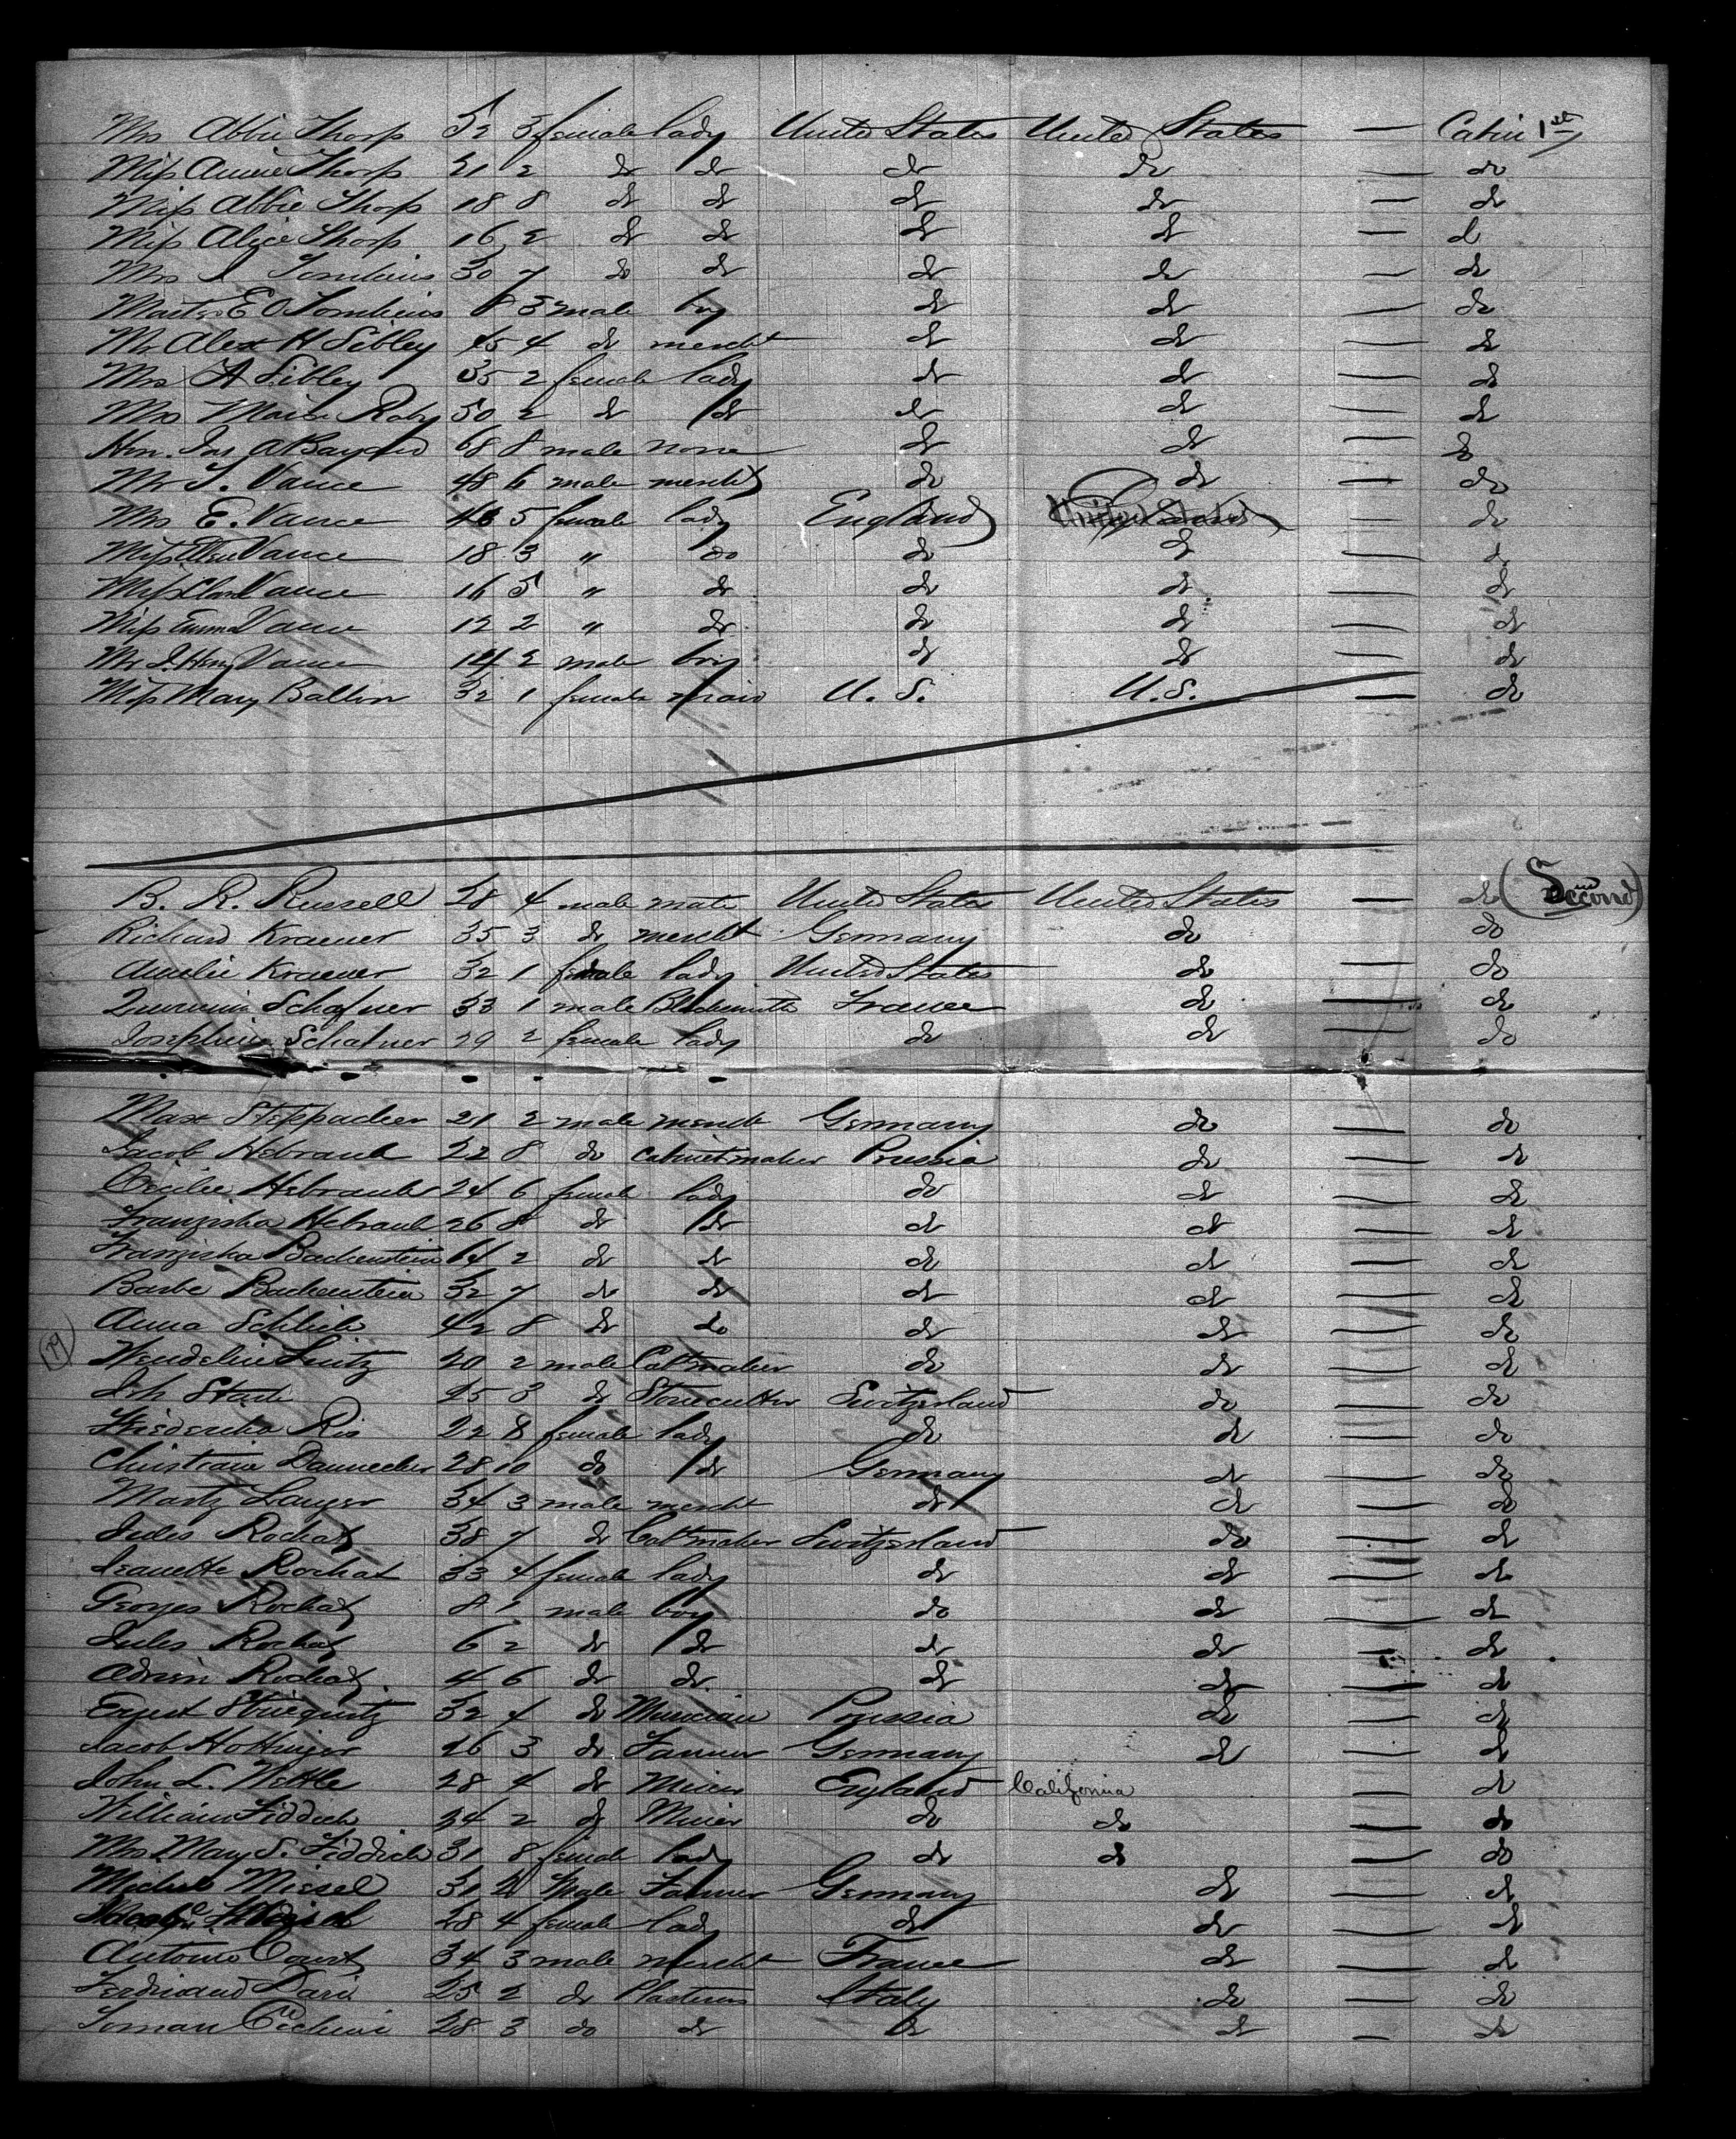 Mrs Abbie Thorp 52 3 female lady United States United States — Cabin 1st
Miss Annie Thorp 21 2 do do do do — do
Miss Abbie Thorp 18 8 do do do do — do
Miss Alice Thorp 16 2 do do do do — do
Mrs J Tomkins 30 7 do do do do — do
Master E O Tomkins 8 3 male boy do do — do
Mr Alex H Sibley 45 4 do mercht do do — do
Mrs A Sibley 35 2 female lady do do — do
Mrs Maria Raby 50 2 do do do do — do
Hon. Jas A Bayard 68 8 male none do do — do
Mr J. Vance 48 6 male mercht do do — do
Mrs E. Vance 40 5 female lady England United States — do
Miss Vance 18 3 " do do do — do
Miss Clara Vance 16 5 " do do do — do
Miss Emma Vance 12 2 " do do do — do
Mr J. Henry Vance 14 2 male boy do do — do
Miss Mary Balton 32 1 female maid U. S. U. S. — do
B. R. Russell 28 4 male mate United States United States — do (Second)
Richard Kraemer 35 3 do mercht Germany do — do
Amelie Kraemer 32 1 female lady United States do — do
Schafner 33 1 male Blacksmith France do — do
Josephine Schafner 29 2 female lady do do — do
Max Steppacher 21 2 male mercht Germany do — do
Jacob Hebrank 22 8 do Cabinetmaker Prussia do — do
Cecilie Hebrank 24 6 female lady do do — do
Franziska Hebrank 26 8 do do do do — do
Franziska Backenstein 64 2 do do do do — do
Barbe Backenstein 32 7 do do do do — do
Anna Schlich 42 8 do do do do — do
(19)
Wendelin Lentz 20 2 male Cabtmaker do do — do
Joh Stark 25 3 do Stonecutter Switzerland do — do
Friedericka Ris 22 8 female lady do do — do
Christiane Dannecker 28 10 do do Germany do — do
Moritz Langer 34 3 male mercht do do — do
Jules Rochat 38 7 do Cabtmaker Switzerland do — do
Jeanette Rochat 33 4 female lady do do — do
Georges Rochat 8 1 male boy do do — do
Jules Rochat 6 2 do do do do — do
Adrien Rochat 4 6 do do do do — do
Ernest 32 4 do Musician Prussia do — do
Jacob Hottinger 26 3 do Farmer Germany do — do
John L. Nettle 28 4 do Miner England California — do
William Fiddick 34 2 do Miner do do — do
Mrs Mary S. Fiddick 31 8 female lady do do — do
Michael Miesel 31 2 Male Farmer Germany do — do
28 4 female lady do do — do
Antonio Court 34 3 male mercht France do — do
Ferdinand Paris 25 2 do Plasterers Italy do — do
Toman Cechini 28 3 do do do do — do